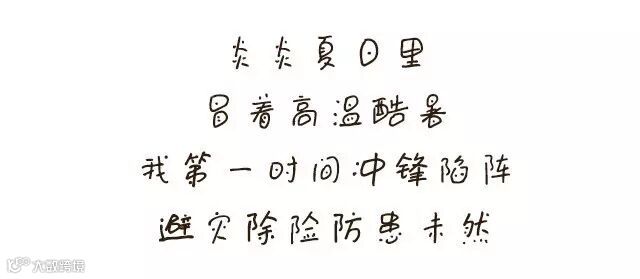 炎炎夏日里
冒着高温酷暑
我第一时间冲锋陷阵
避灾除险防患未然
大数跨境